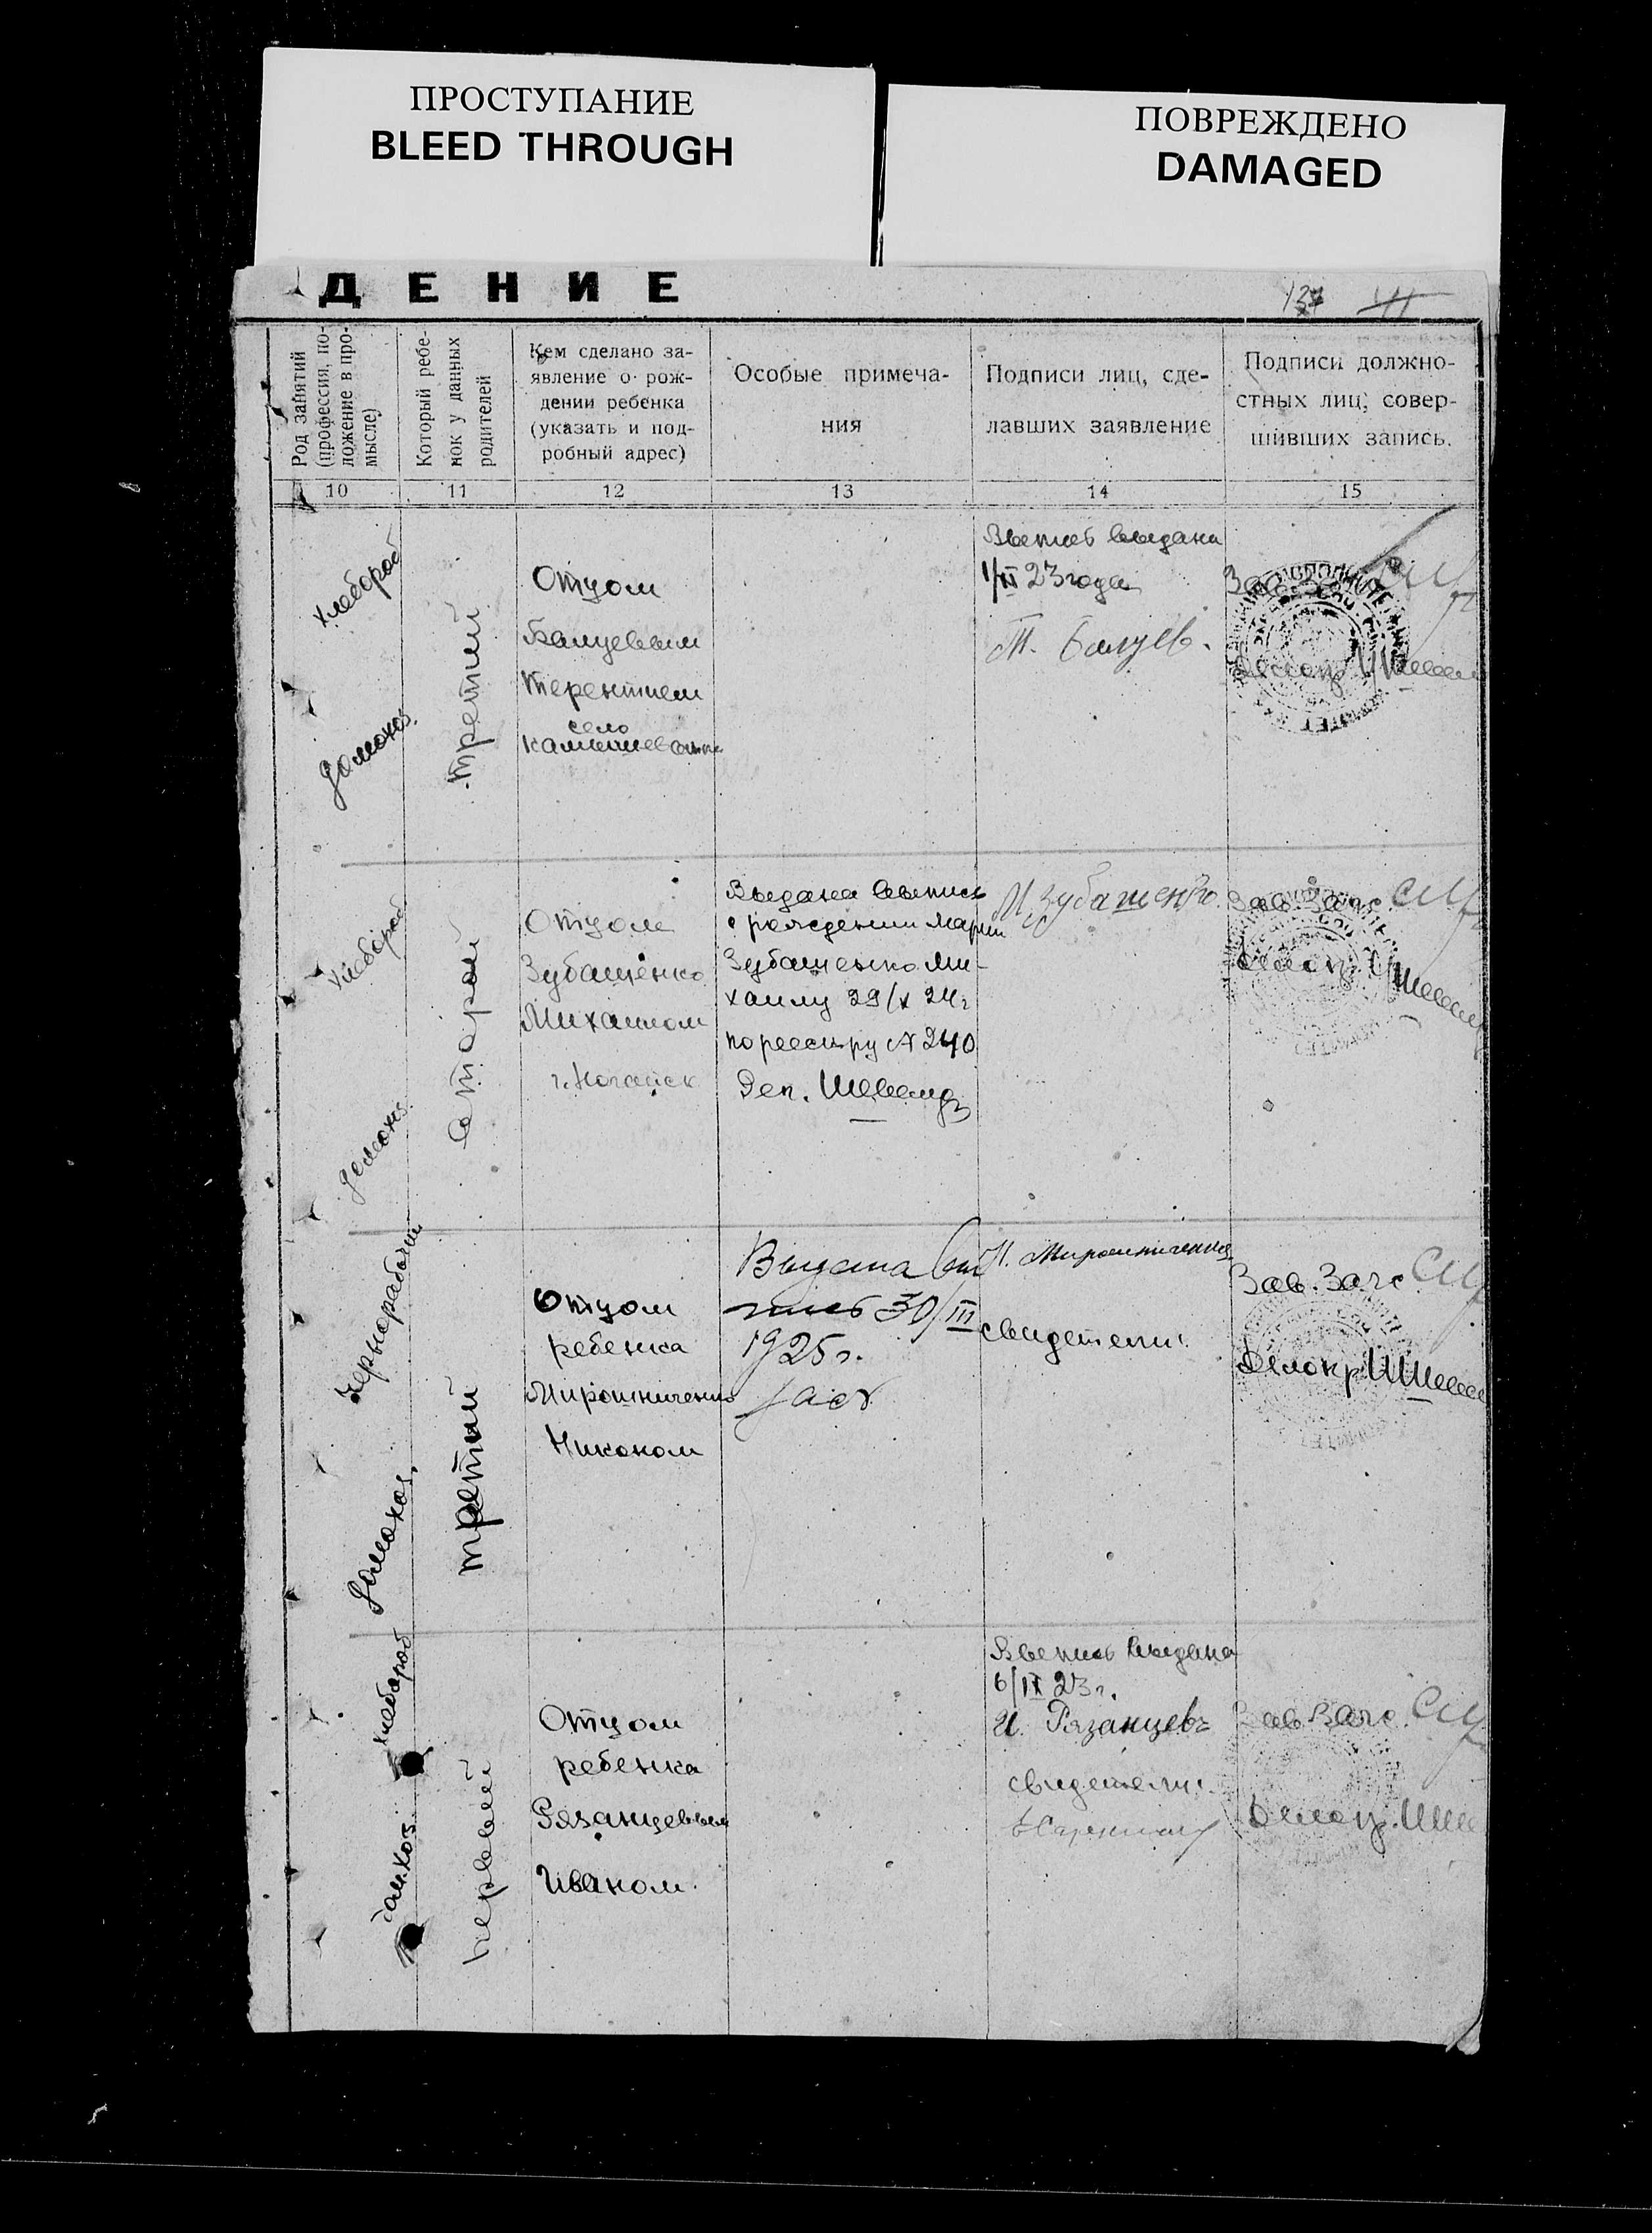 ПРОСТУПАНИЕ
BLEED THROUGH
ПОВРЕЖДЕНО
DAMAGED
ДЕНИЕ
137
Род занятий
(профессия, по-
ложение в про-
мысле)
Который ребе-
нок у данных
родителей
Кем сделано за-
явление о рож-
дении ребенка
(указать и под-
робный адрес)
Особые примеча-
ния
Подписи лиц, сде-
лавших заявление
Подписи должно-
стных лиц, совер-
шивших запись.
10
11
12
13
14
15
хлебороб
домохоз.
третий
Отцом
Балуевым
Терентием
село
Выпись выдана
23 года
Т. Балуев.
хлебороб
домохоз.
второй
Отцом
Зубащенко
Михаилом
г. Ногайск
Выдана выпись
о рождении Марии
Зубащенко Ми-
хаилу 29/X 24 г
по реестру № 240
Зав. Загс
чернорабочий
домохоз.
третий
Отцом
ребенка
Мирошниченко
Никоном
Выдана вы
пись 30/III
1925 г.
Н. Мирошниченко
свидетели:
Зав. Загс
Делопр
хлебороб
домхоз.
первый
Отцом
ребенка
Рязанцевым
Иваном.
Выпись выдана
6/IX 23 г.
И. Рязанцевъ
свидетели:
Зав Загс.
Делопр.